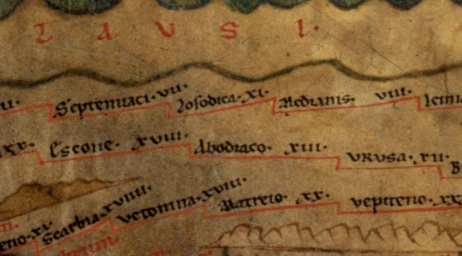 R A V S I ·
II · Septemiaci · VII · Losodica · XI · Medianis · VIII · Icini
XX · Escone · XVIII · Abodiaco · XIII · VRVSA · XII ·
Scarbia · XVIIII · Vetomna · XVIII · Matreio · XX · Vepiteno · XX